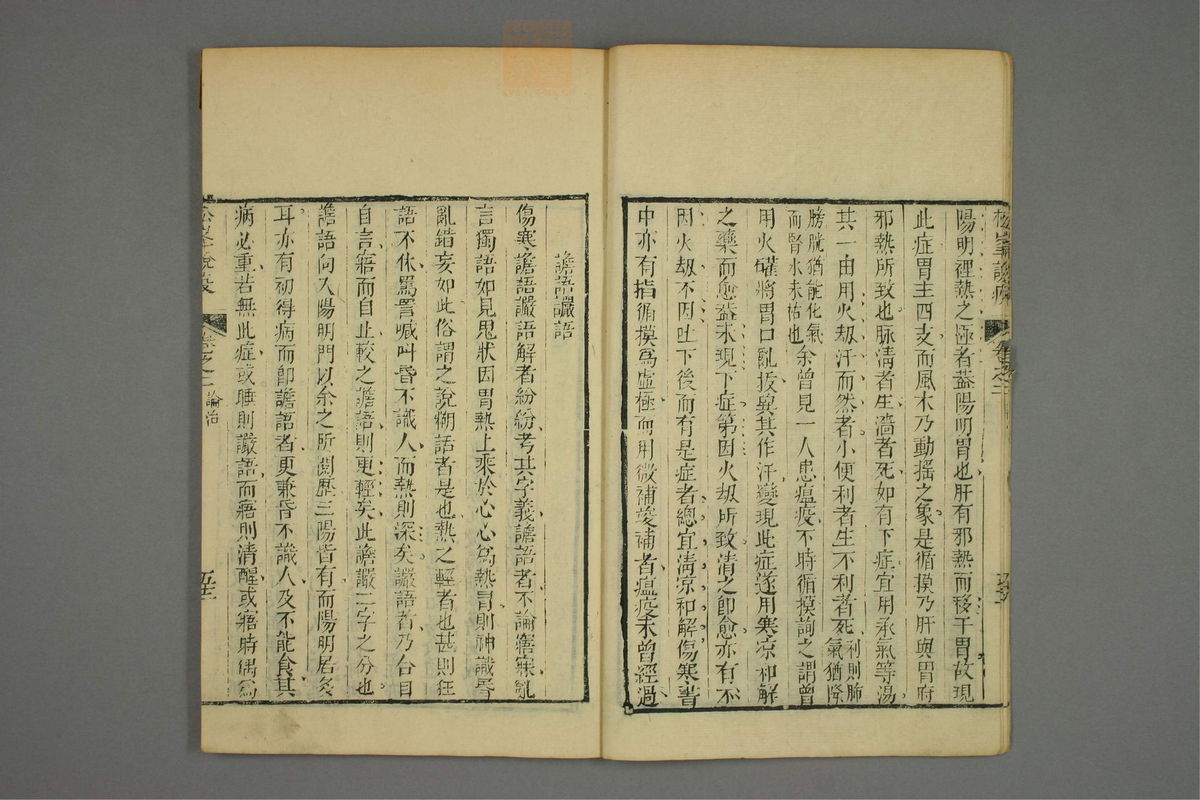 陽明裡熱之極者蓋陽明胃也肝有邪熱而移于胃故現
此症胃主四支而風木乃動搖之象是循摸乃肝與胃府
邪熱所致也脉清者生濇者死如有下症宜用承氣等湯
其一由用火刼汗而然者小便利者生不利者死利則肺氣猶降
膀胱猶能化氣而腎水未枯也余曾見一人患瘟疫不時循摸詢之謂曾
用火礶將胃口亂拔兾其作汗變現此症遂用寒凉和解
之藥而愈蓋未現下症第因火刼所致清之卽愈亦有不
因火刼不因吐下後而有是症者總宜淸凉和解傷寒書
中亦有指循摸爲虛極而用微補峻補者瘟疫未曾經過
譫語讝語
傷寒譫語讝語解者紛紛考其字義譫語者不論寤寐亂
言獨語如見鬼狀因胃熱上乘於心心爲熱冒則神識昏
亂錯妄如此俗謂之說糊語者是也熱之輕者也甚則狂
語不休罵詈喊叫昏不識人而熱則深矣讝語者乃合目
自言寤而自止較之譫語則更輕矣此譫讝二字之分也
譫語向入陽明門以余之所閱歷三陽皆有而陽明居多
耳亦有初得病而卽譫語者更兼昏不識人及不能食其
病必重若無此症或睡則讝語而寤則清醒或寤時偶爲
松峯說疫
卷之二
論治
五十二